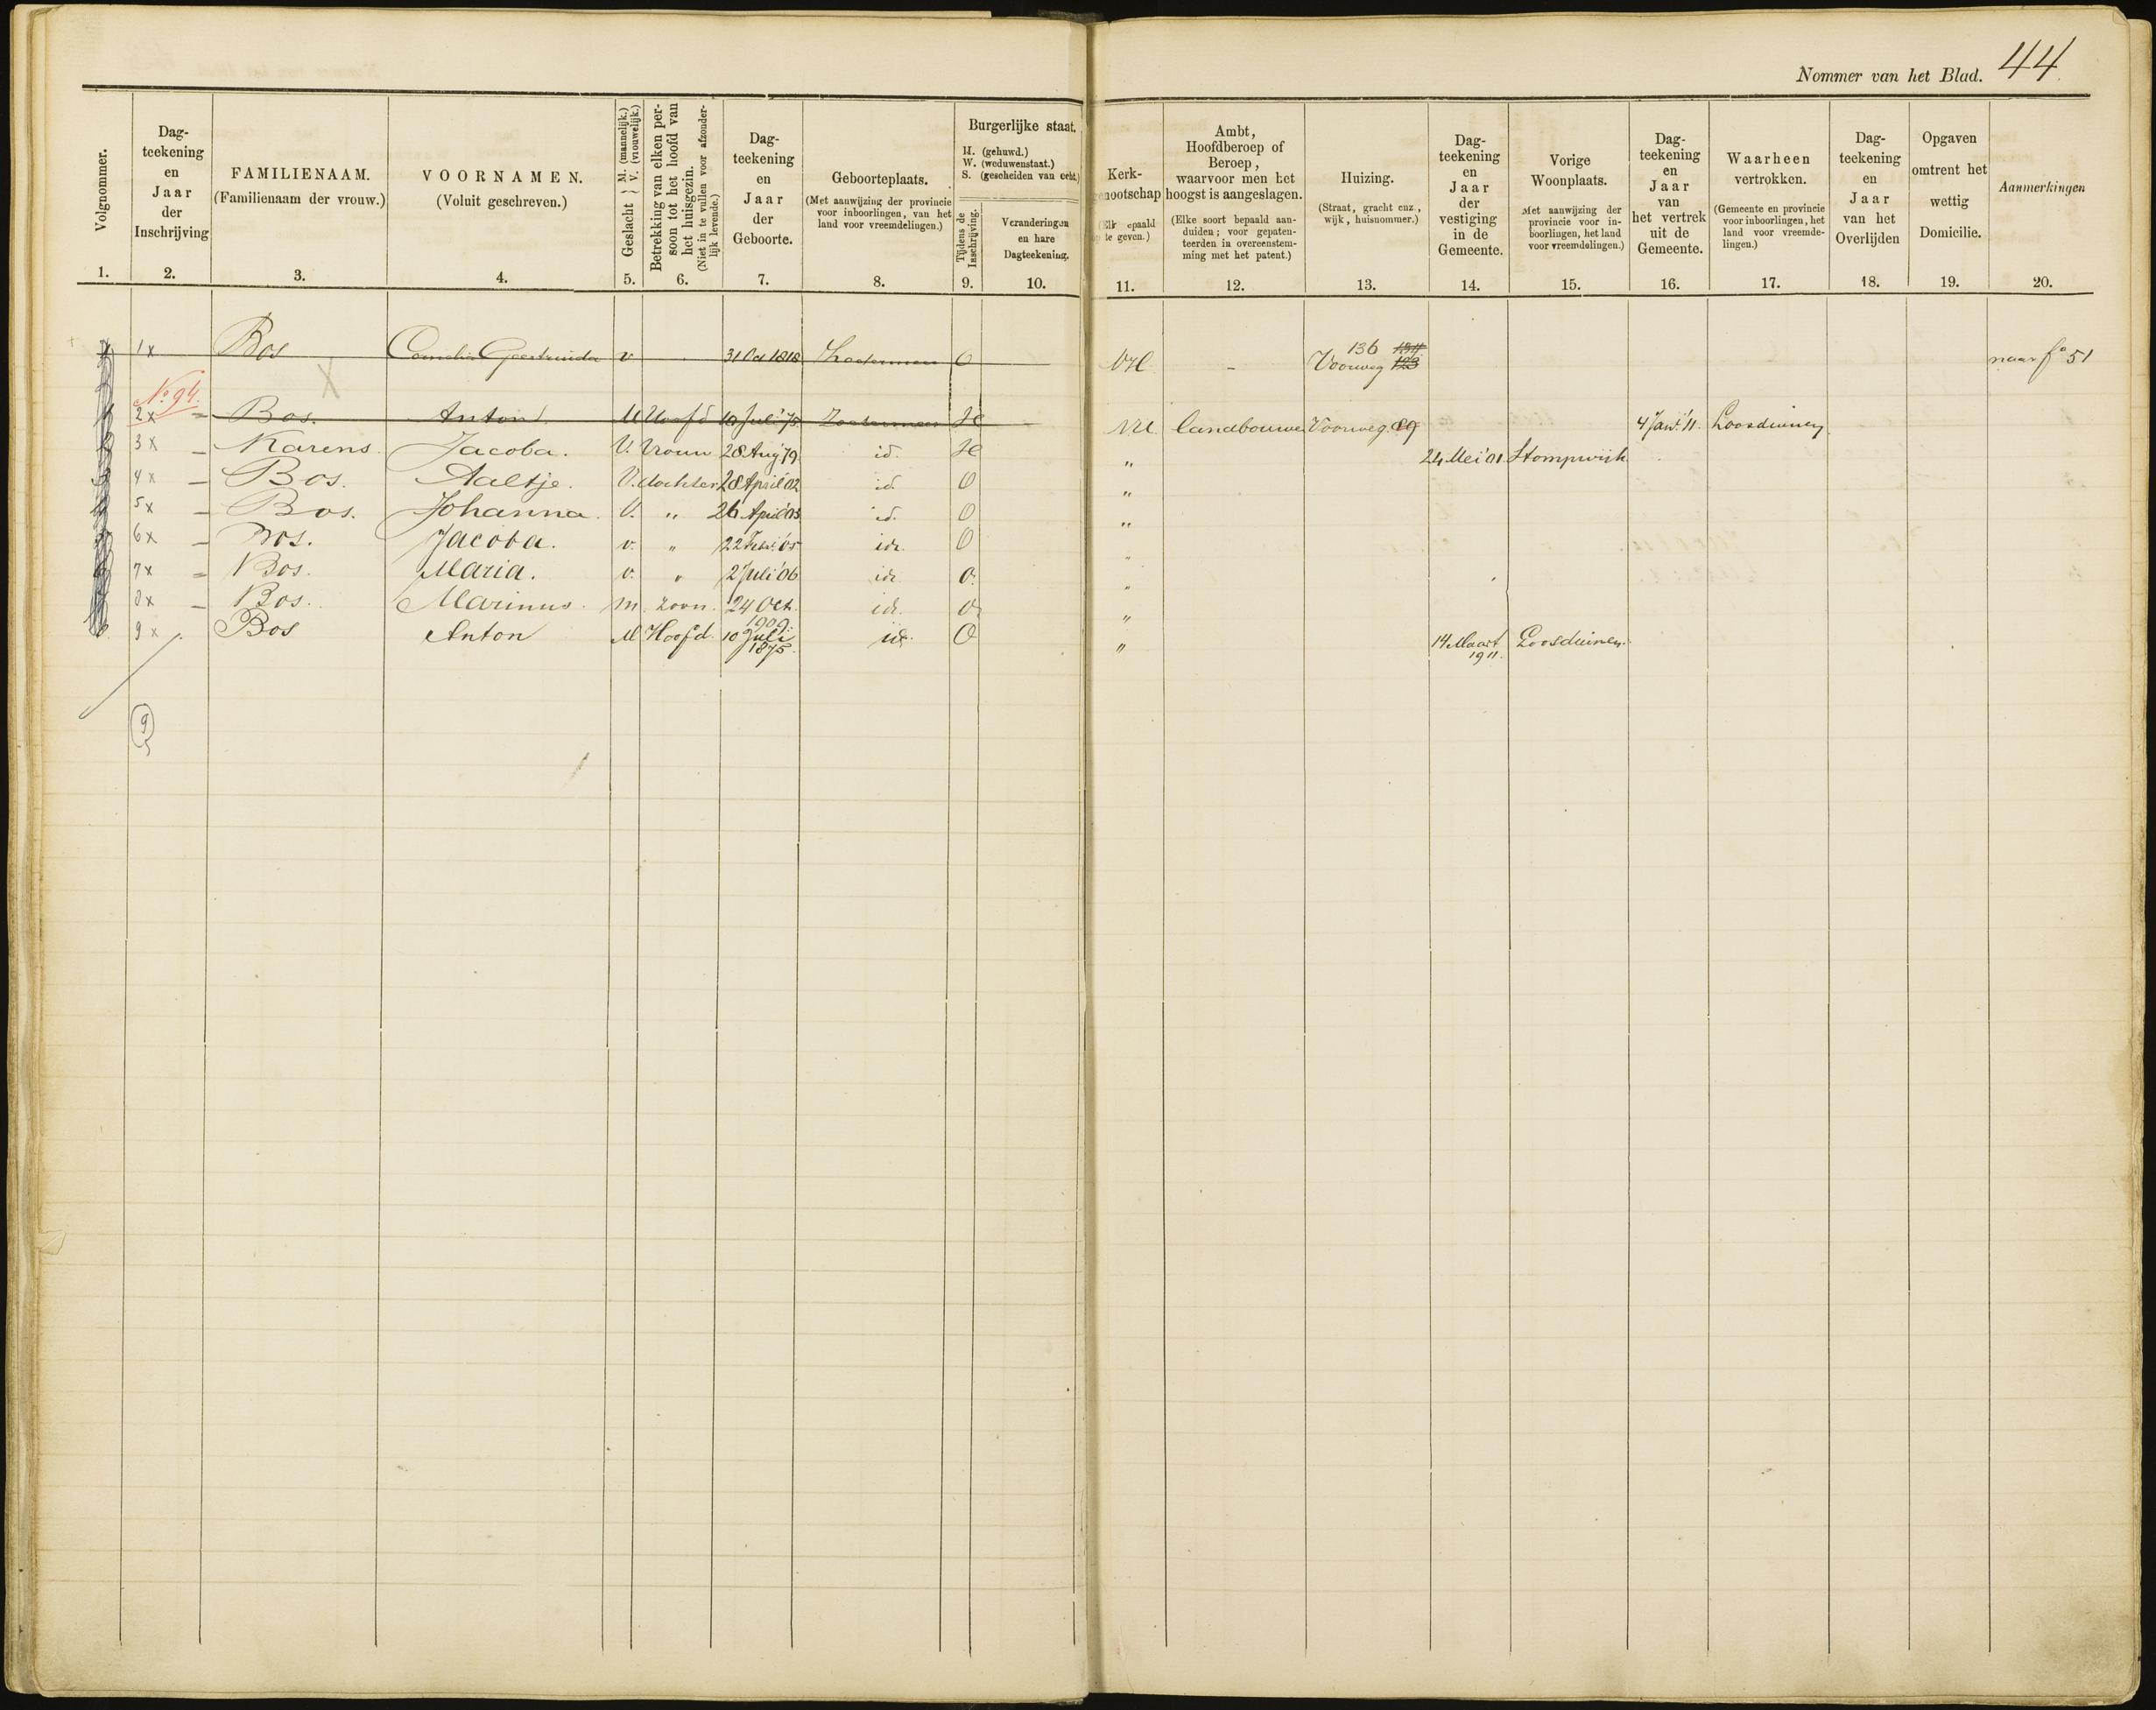 Nommer van het Blad. 44
Volgnommer.
1.
Dag-
teekening
en
Jaar
der
Inschrijving
2.
FAMILIENAAM.
(Familienaam der vrouw.)
3.
VOORNAMEN.
(Voluit geschreven.)
4.
Geslacht } M. (mannelijk.) V. (vrouwelijk.)
5.
Betrekking van elken per-
soon tot het hoofd van
het huisgezin.
(Niet in te vullen voor afzonder-
lijk levende.)
6.
Dag-
teekening
en
Jaar
der
Geboorte.
7.
Geboorteplaats.
(Met aanwijzing der provincie
voor inboorlingen, van het
land voor vreemdelingen.)
8.
Burgerlijke staat.
H. (gehuwd.)
W. (weduwenstaat.)
S. (gescheiden van echt.)
Tijdens de
Inschrijving.
9.
Veranderingen
en hare
Dagteekening.
10.
Kerk-
nootschap
te geven.)
11.
Ambt,
Hoofdberoep of
Beroep,
waarvoor men het
hoogst is aangeslagen.
(Elke soort bepaald aan-
duiden; voor gepaten-
teerden in overeenstem-
ming met het patent.)
12.
Huizing.
(Straat, gracht enz.,
wijk, huisnommer.)
13.
Dag-
teekening
en
Jaar
der
vestiging
in de
Gemeente.
14.
Vorige
Woonplaats.
Met aanwijzing der
provincie voor in-
boorlingen, het land
voor vreemdelingen.)
15.
Dag-
teekening
en
Jaar
van
het vertrek
uit de
Gemeente.
16.
Waarheen
vertrokken.
(Gemeente en provincie
voor inboorlingen, het
land voor vreemde-
lingen.)
17.
Dag-
teekening
en
Jaar
van het
Overlijden
18.
Opgaven
omtrent het
wettig
Domicilie.
19.
Aanmerkingen
20.
1 x Bos Cornelia Geertruida v 31 Oct 1818 Zoetermeer O NH - Voorweg 136 naar fo 51
No 94.
2 x = Bos. Anton M Hoofd 10 Juli '75 Zoetermeer H NH landbouwer Voorweg. 89 4 Jan: '11 Loosduinen
3 x - Karens. Jacoba. V. Vrouw 28 Aug '79 id. H " 24 Mei '01 Stompwijk
4 x - Bos. Aaltje. V. dochter 28 April '02 id. O "
5 x - Bos. Johanna. V. " 26 April '03 id. O "
6 x - Bos. Jacoba. v. " 22 Febr. '05 id. O "
7 x = Bos. Maria. v. " 2 Juli '06 id. O. "
8 x - Bos. Marinus. m. zoon. 24 Oct. 1909. id. O "
9 x Bos Anton M Hoofd. 10 Juli 1875. id. O " 14 Maart 1911. Loosduinen.
9